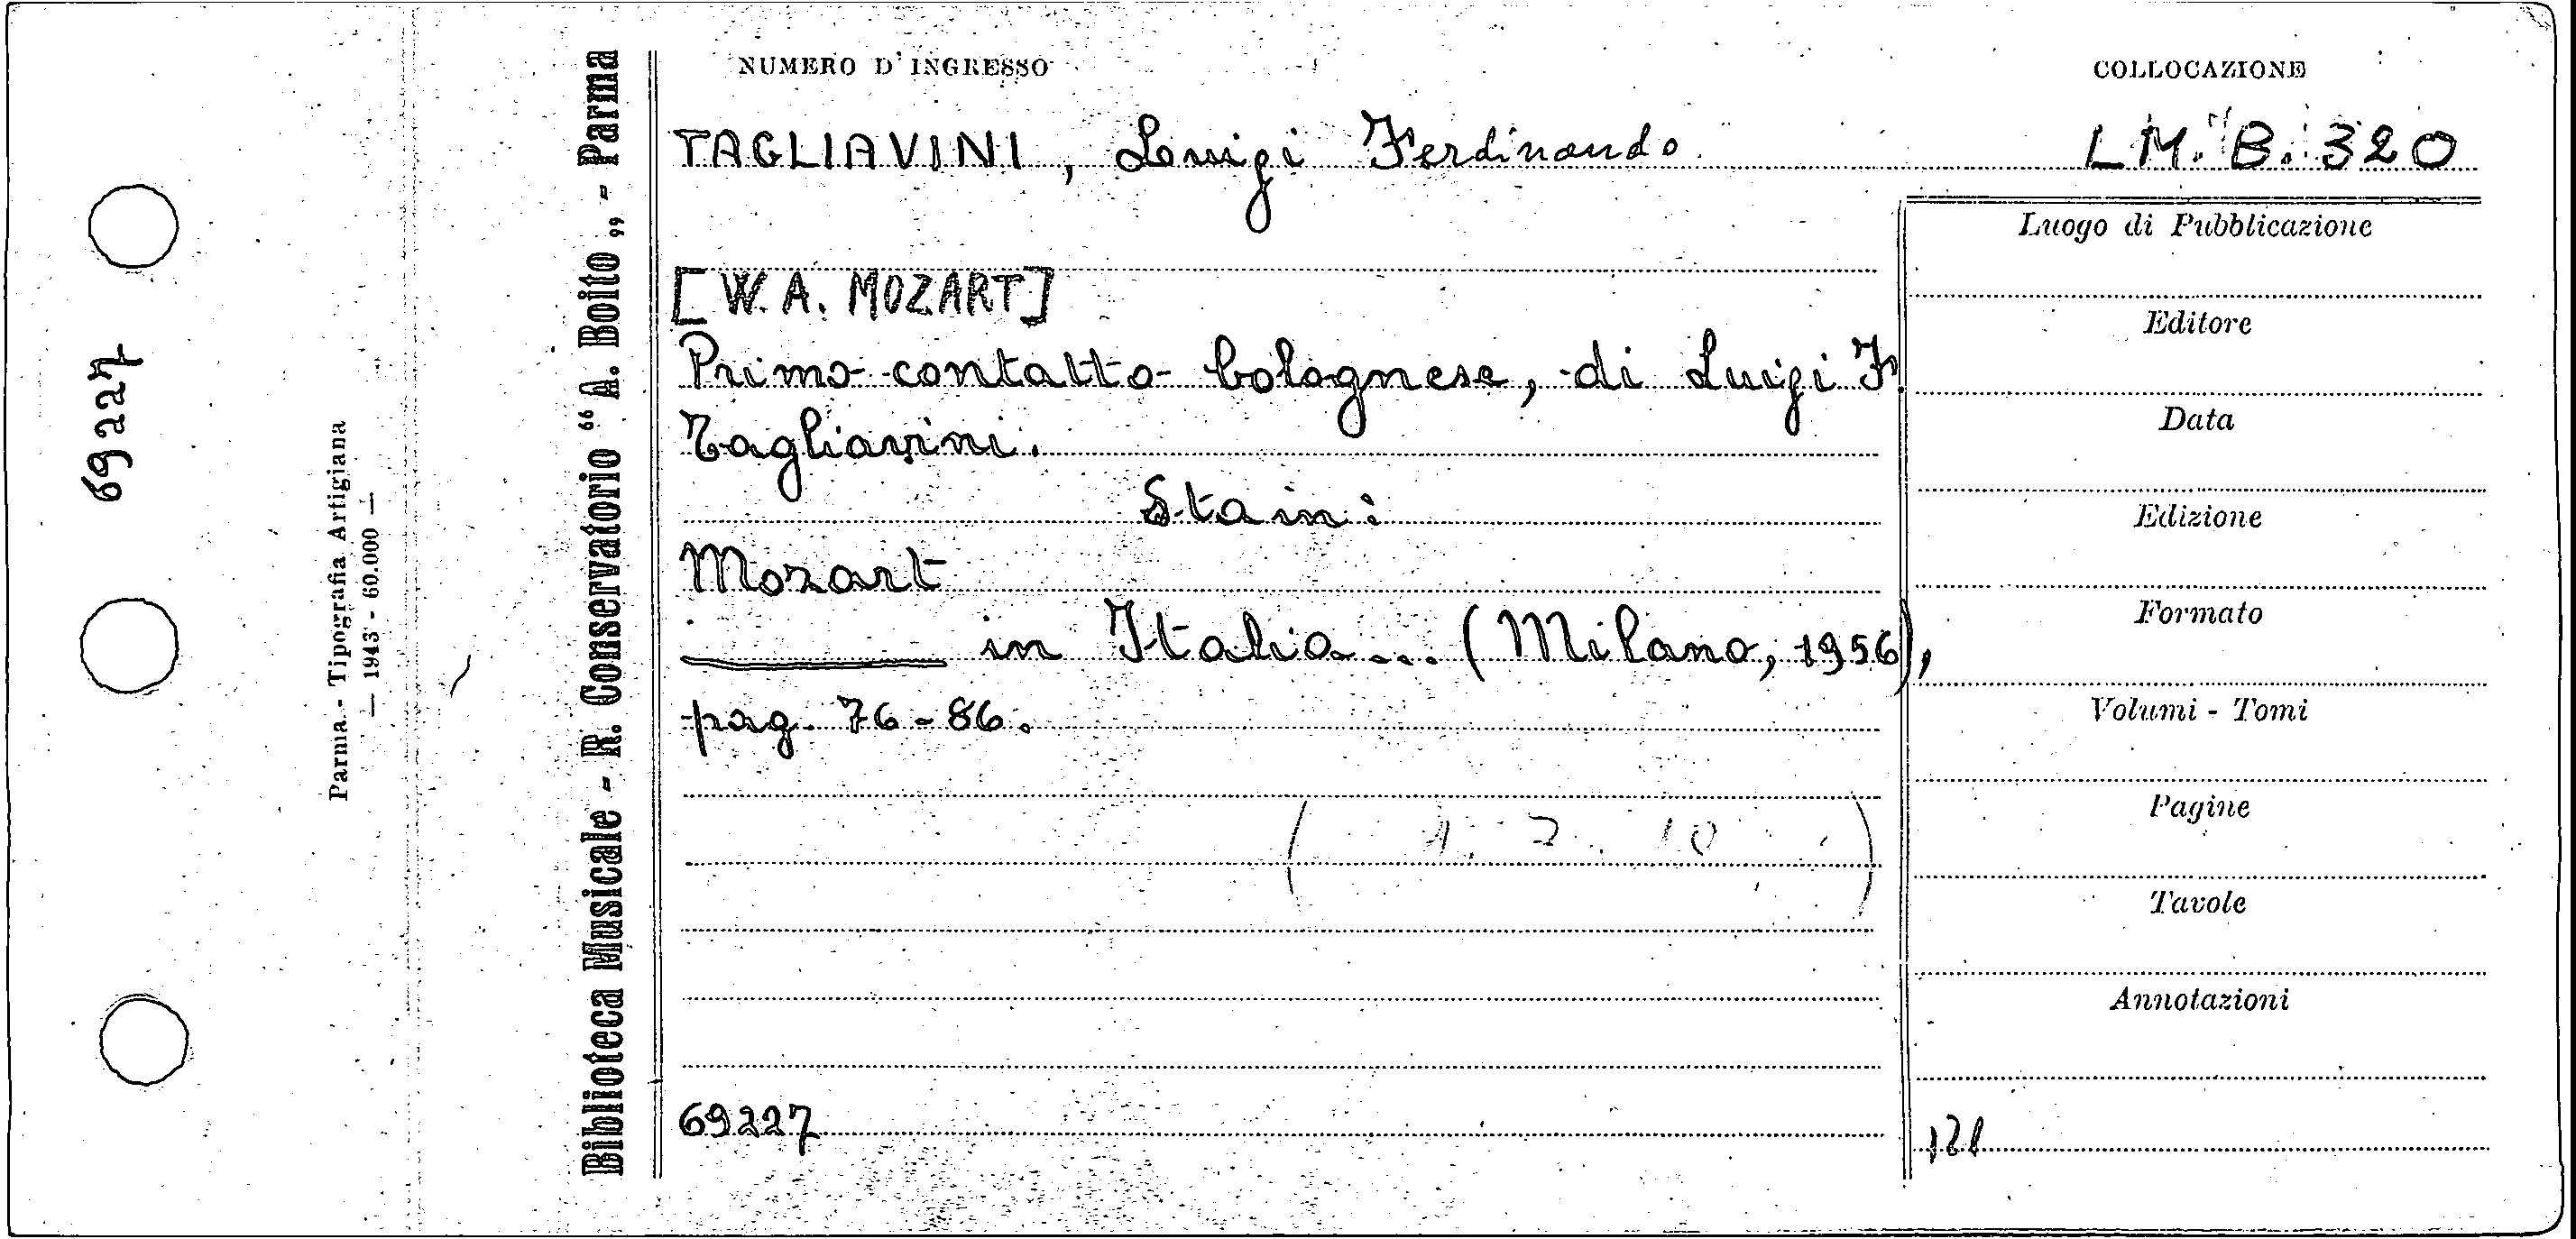 NUMERO D'INGRESSO
COLLOCAZIONE
TAGLIAVINI, Luigi Ferdinando.
LM. B. 320
[W. A. MOZART]
Primo contatto bolognese, di Luigi F.
Tagliavini.
Sta in:
Mozart
in Italia... (Milano, 1956),
pag. 76-86.
69227
Luogo di Pubblicazione
Editore
Data
Edizione
Formato
Volumi - Tomi
Pagine
Tavole
Annotazioni
Biblioteca Musicale - R. Conservatorio “A. Boito„ - Parma
Parma - Tipografia Artigiana
— 1943 - 60.000 —
69227